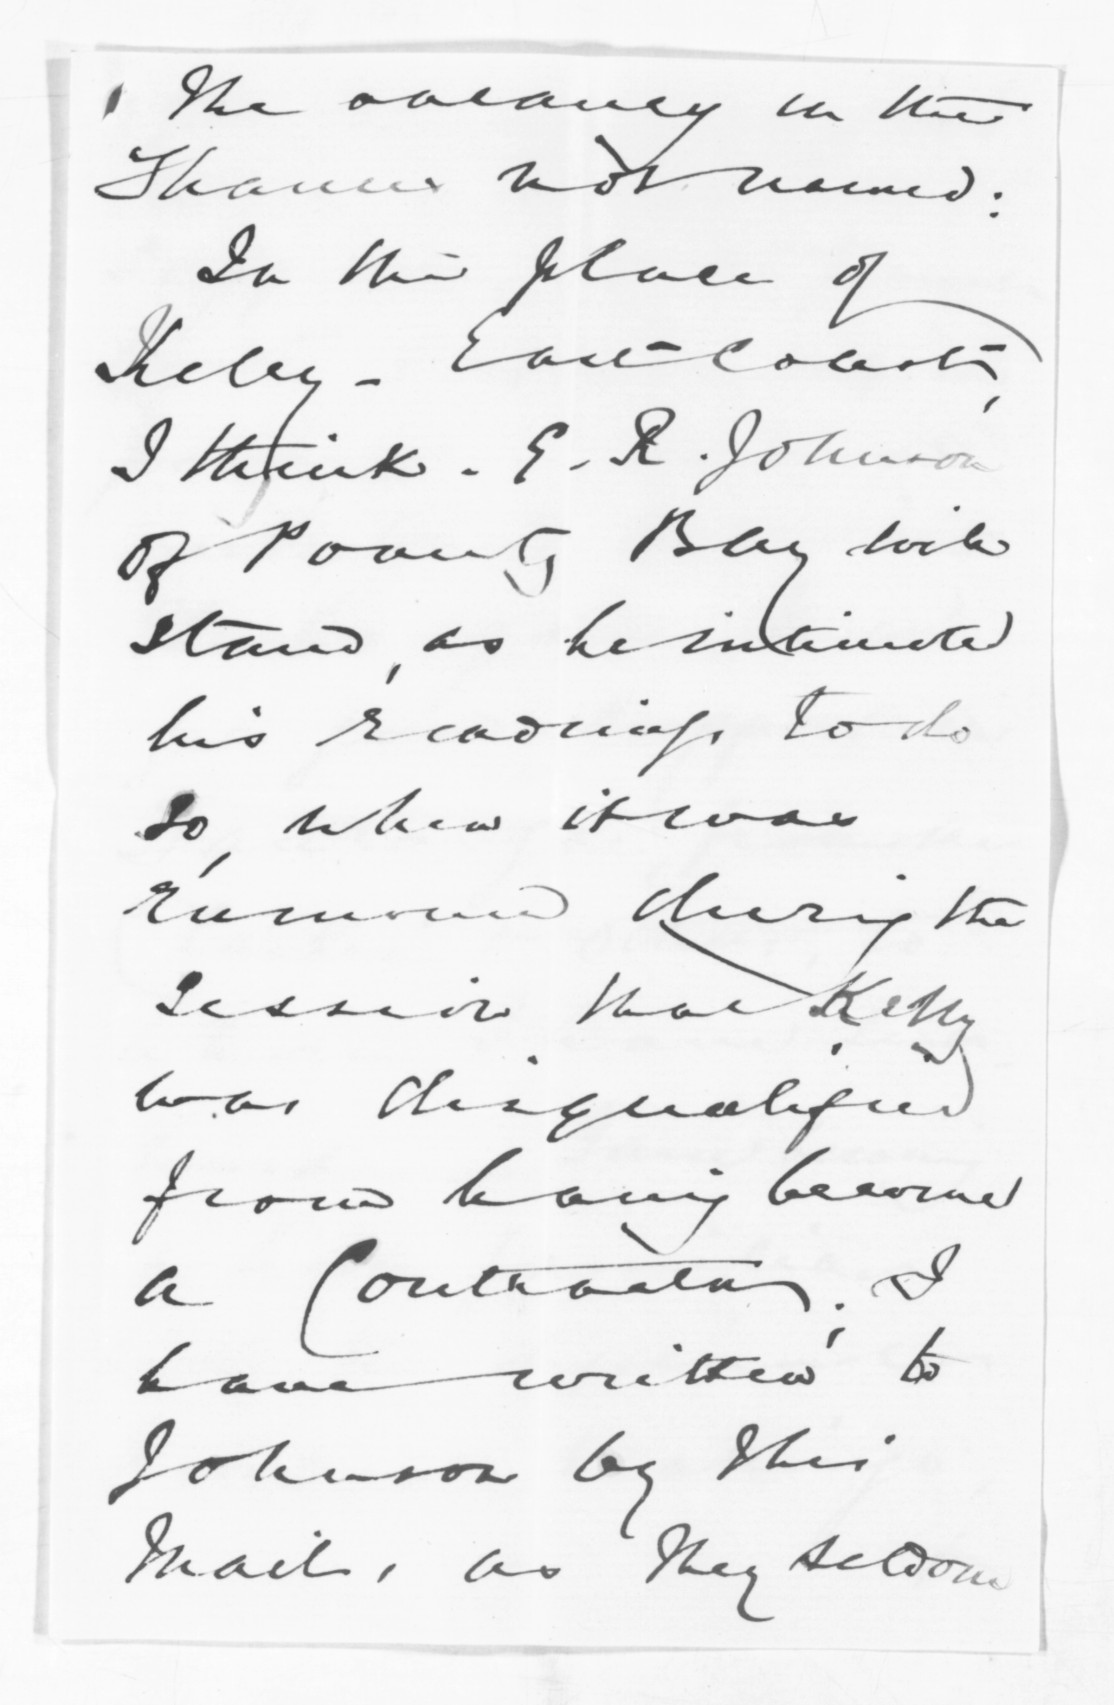 The vacancy in the
Thames not named:
In the place of
Kelly - East Coast,
I think - E. R. Johnson
of Poverty Bay will
stand, as he intimated
his readiness to do
so, when it was
rumoured during the
session that Kelly
was disqualified
from having become
a Contractor. I
have written to
Johnson by this
Mail, as they seldom